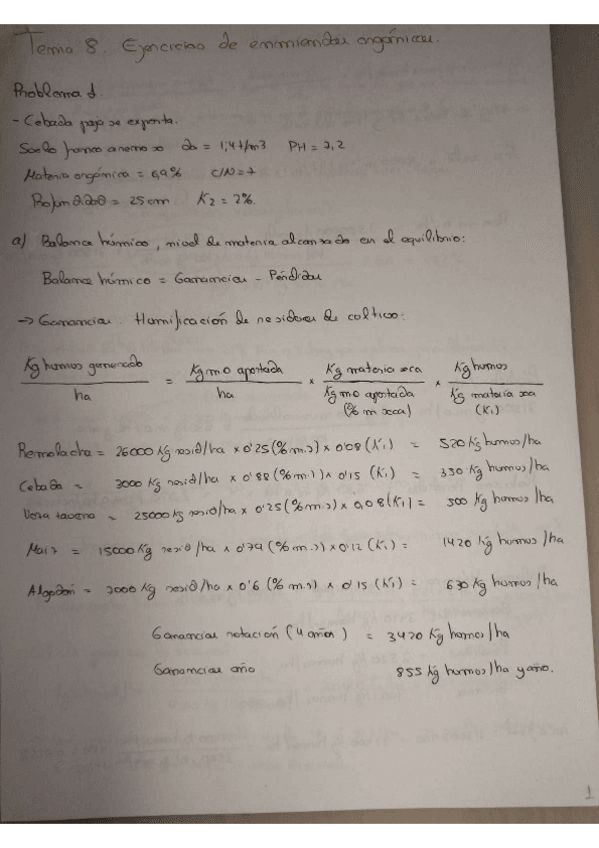 Tema 8. Ejercicios de enmiendas orgánicas.
Problema 1.
- Cebada paja se exporta.
Suelo franco arenoso da = 1,4 t/m3 PH = 7,2
Materia orgánica = 0,9% C/N = 7
Profundidad = 25 cm K2 = 2%.
a) Balance húmico, nivel de materia alcanzado en el equilibrio:
Balance húmico = Ganancias - Pérdidas
→ Ganancias. Humificación de residuos de cultivo:
Kg humus generado / ha = Kg mo aportada / ha × Kg materia seca / Kg mo aportada (% m seca) × Kg humus / Kg materia seca (K1)
Remolacha = 26000 Kg resid/ha × 0'25 (% m.s) × 0'08 (K1) = 520 Kg humus/ha
Cebada = 3000 Kg resid/ha × 0'88 (% m.s) × 0'15 (K1) = 330 Kg humus/ha
Veza = 25000 Kg resid/ha × 0'25 (% m.s) × 0,08 (K1) = 500 Kg humus/ha
Maiz = 15000 Kg resid/ha × 0'79 (% m.s) × 0'12 (K1) = 1420 Kg humus/ha
Algodón = 7000 Kg resid/ha × 0'6 (% m.s) × 0'15 (K1) = 630 Kg humus/ha
Ganancias rotación (4 años) = 3420 Kg humus/ha
Ganancias año 855 Kg humus/ha y año.
1